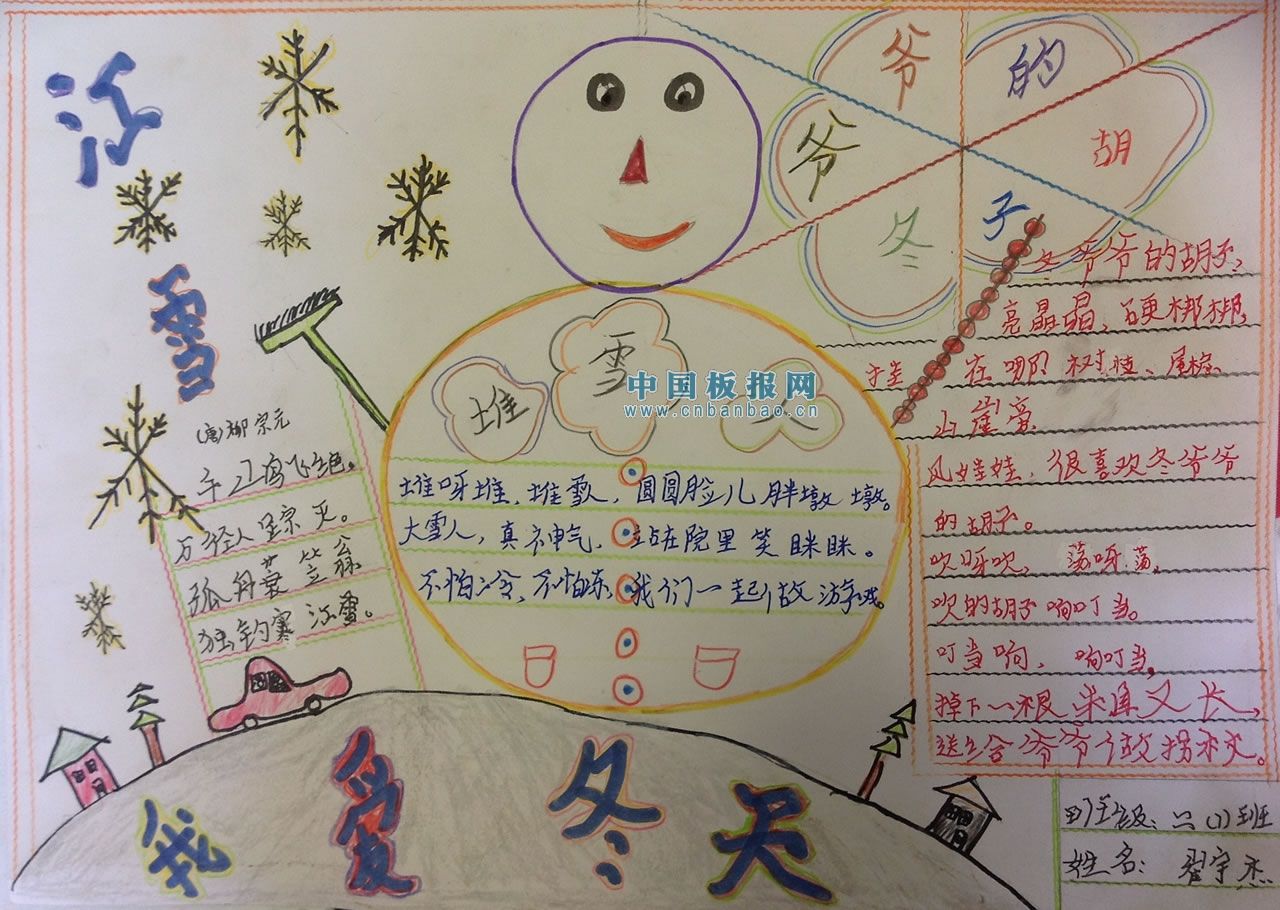 江
雪
(唐)柳宗元
千山鸟飞绝。
万径人踪灭。
孤舟蓑笠翁
独钓寒江雪。
堆雪人
中国板报网
www.cnbanbao.cn
堆呀堆，堆雪人，圆圆脸儿胖墩墩。
大雪人，真神气，站在院里笑眯眯。
不怕冷，不怕冻，我们一起做游戏。
冬爷爷的胡子
冬爷爷的胡子，
亮晶晶、硬梆梆，
挂在哪？树枝、屋檐
山崖旁
风娃娃，很喜欢冬爷爷
的胡子。
吹呀吹，荡呀荡，
吹的胡子响叮当。
叮当响，响叮当，
掉下一根来直又长，
送给爷爷做拐杖。
我爱冬天
班级：六(1)班
姓名：翟宇杰